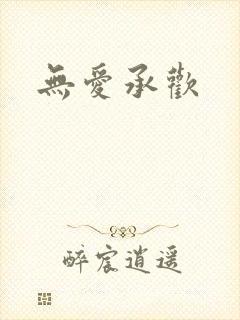 無愛承歡
醉宸逍遥